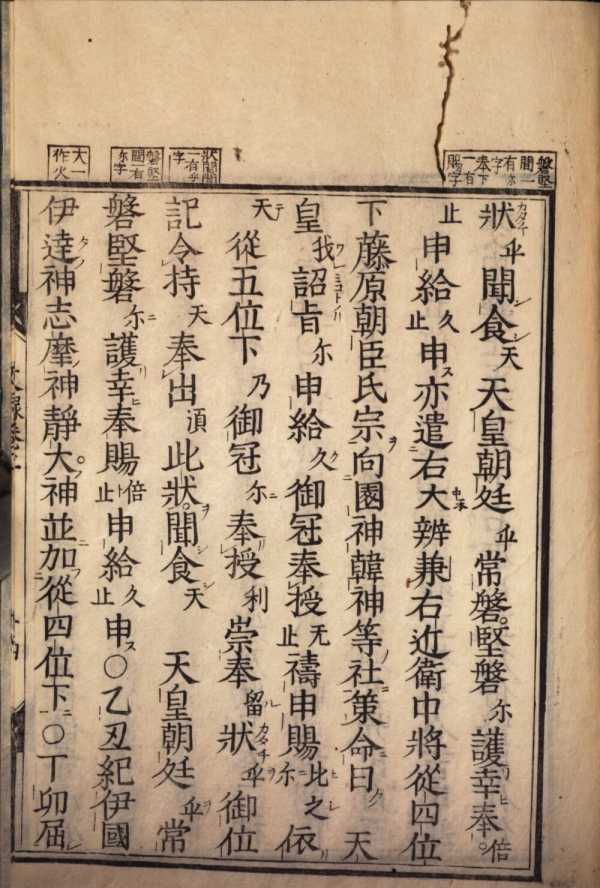 磐堅
間一
有尓
字
奉下
一有
賜字
狀乎聞食天天皇朝廷乎常磐堅磐尓護幸奉倍
止申給久止申亦遣右大辨兼右近衛中將從四位
下藤原朝臣氏宗向園神韓神等社策命曰天
皇我詔旨尓申給久御冠奉授无止禱申賜此之依
天從五位下乃御冠尓奉授利崇奉留狀乎御位
記令持天奉出須此狀聞食天天皇朝廷乎常
磐堅磐尓護幸奉賜倍止申給久止申○乙丑紀伊國
伊達神志摩神靜大神並加從四位下○丁卯屆
狀聞間
一有乎
字
磐堅
間一有
尓字
大一
作火